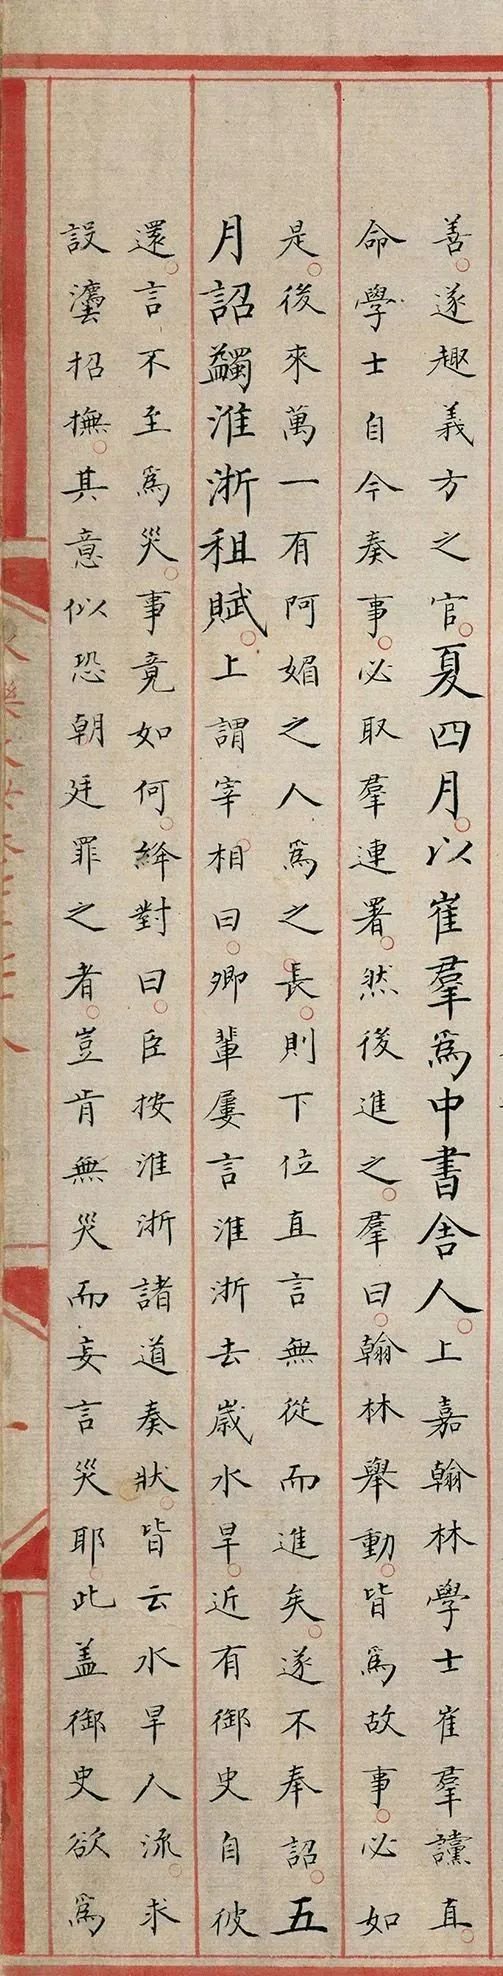 善遂趣義方之官夏四月以崔羣爲中書舍人上嘉翰林學士崔羣讜直
命學士自今奏事必取羣連署然後進之羣曰翰林舉動皆爲故事必如
是後來萬一有阿媚之人爲之長則下位直言無從而進矣遂不奉詔五
月詔蠲淮浙租賦上謂宰相曰卿輩屢言淮浙去歲水旱近有御史自彼
還言不至爲災事竟如何絳對曰臣按淮浙諸道奏狀皆云水旱人流求
設灋招撫其意似恐朝廷罪之者豈肯無災而妄言災耶此盖御史欲爲